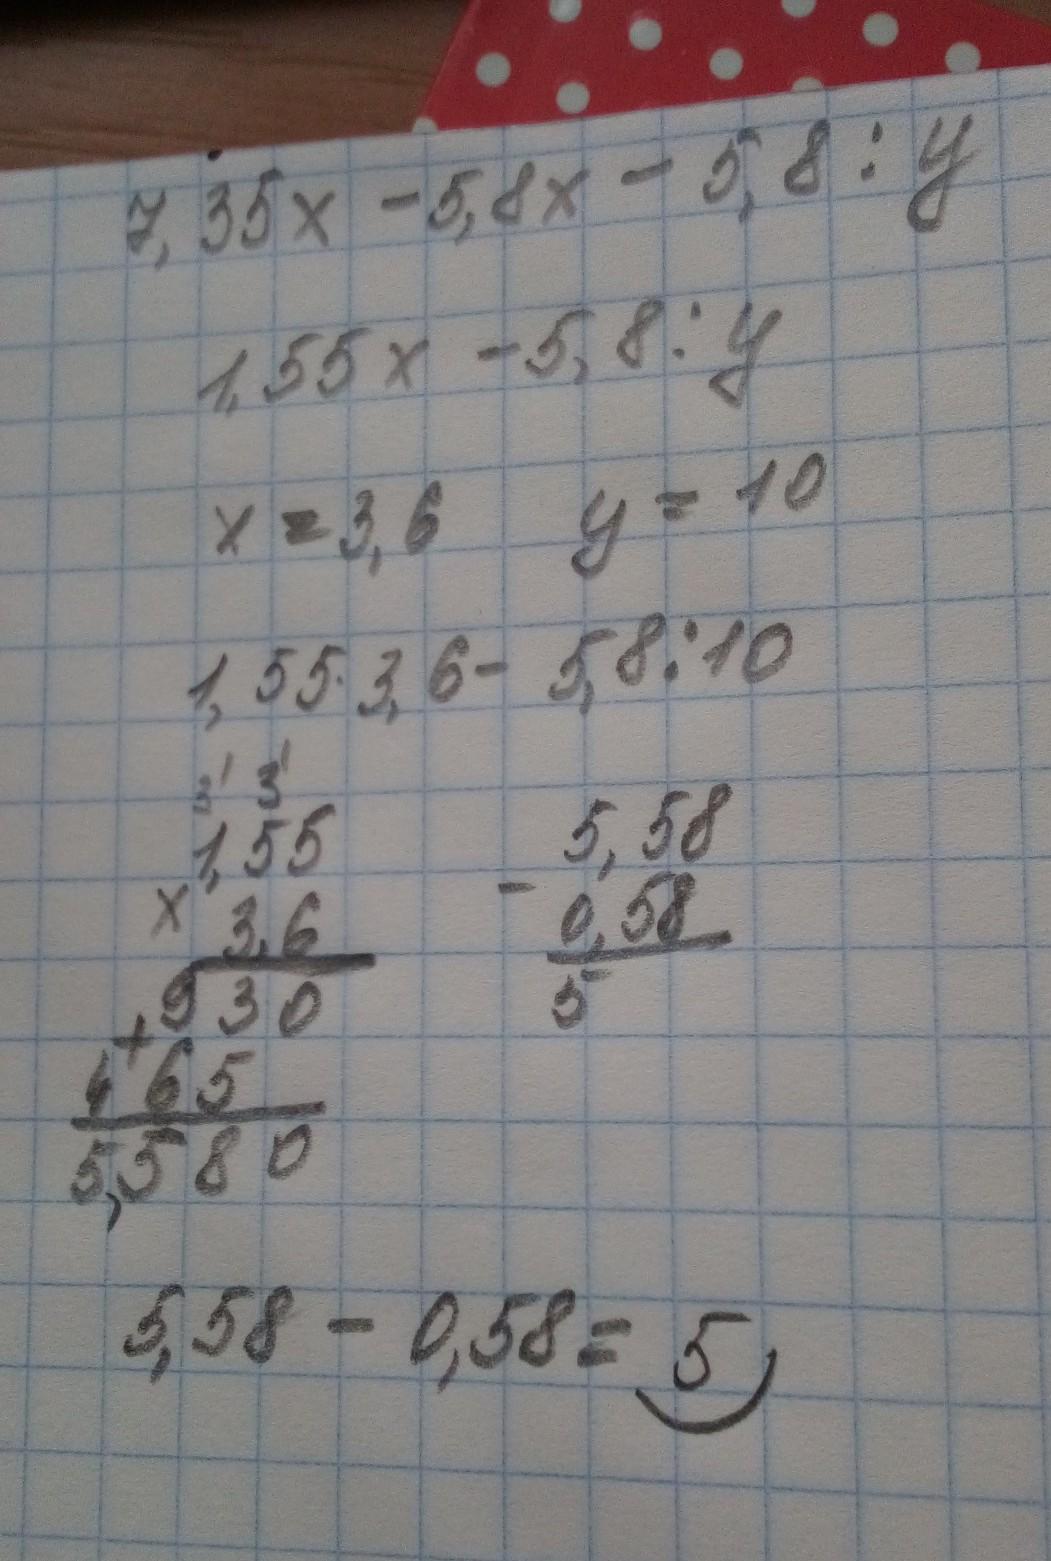 7,35x - 5,8x - 5,8 : y
1,55x - 5,8 : y
x = 3,6 y = 10
1,55 · 3,6 - 5,8 : 10
3¹ 3¹
1,55
x 3,6
930
+
465
5,580
5,58
- 0,58
5
5,58 - 0,58 = 5